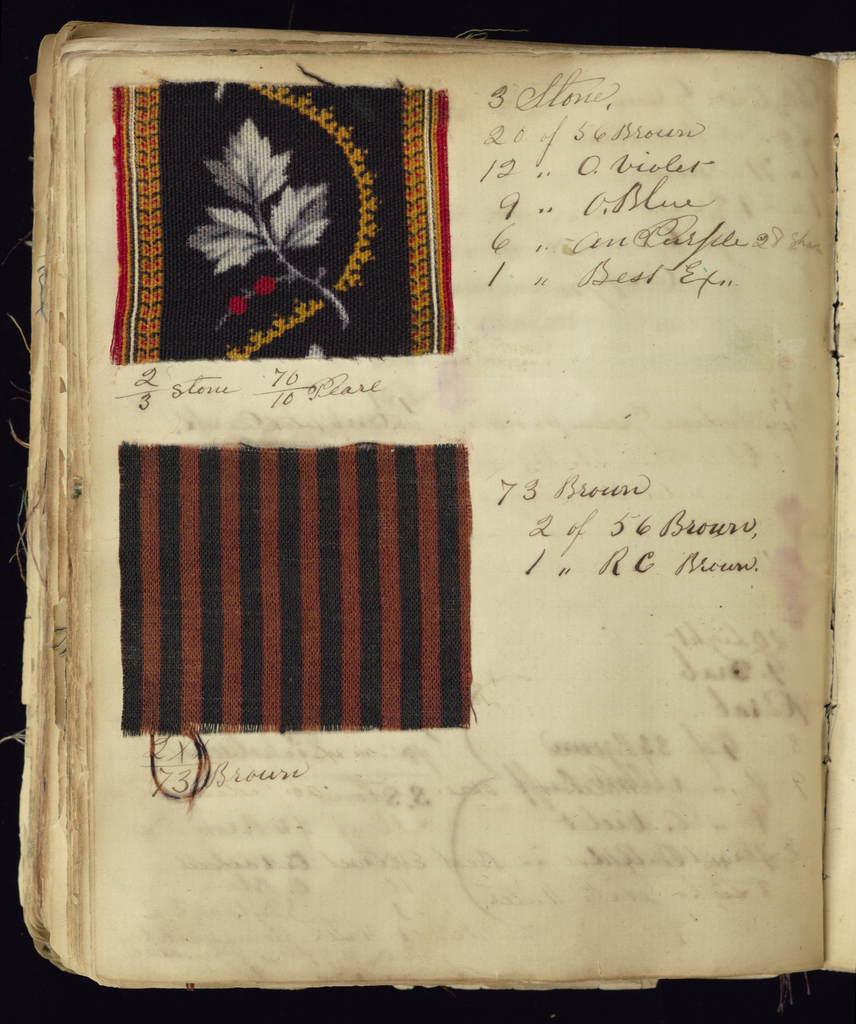 3 Stone.
20 of 56 Brown
12 " O. Violet
9 " O. Blue
6 " An Purple 28
1 " Best Ex..
2/3 Stone 70/10 Pearl
73 Brown
2 of 56 Brown,
1 " R C Brown.
2X/73 Brown